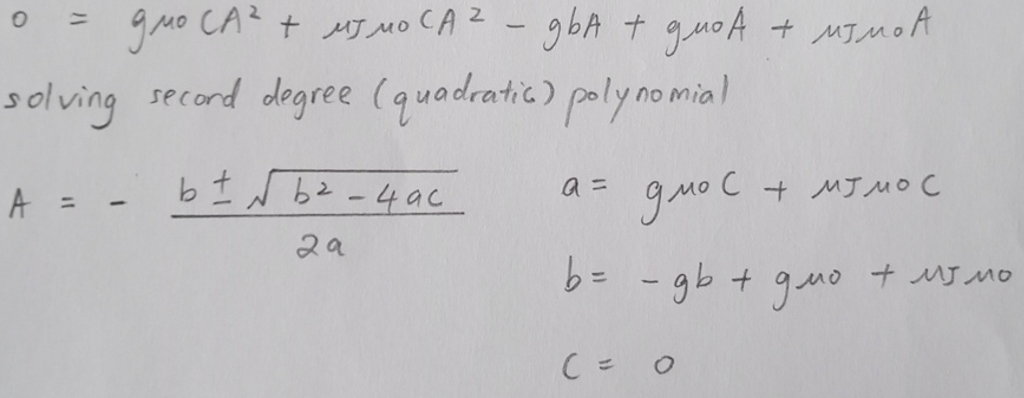 0 = gμ0CA² + μJμ0CA² - gbA + gμ0A + μJμ0A
solving second degree (quadratic) polynomial
A = - b ± √b² - 4ac / 2a
a = gμ0C + μJμ0C
b = - gb + gμ0 + μJμ0
C = 0